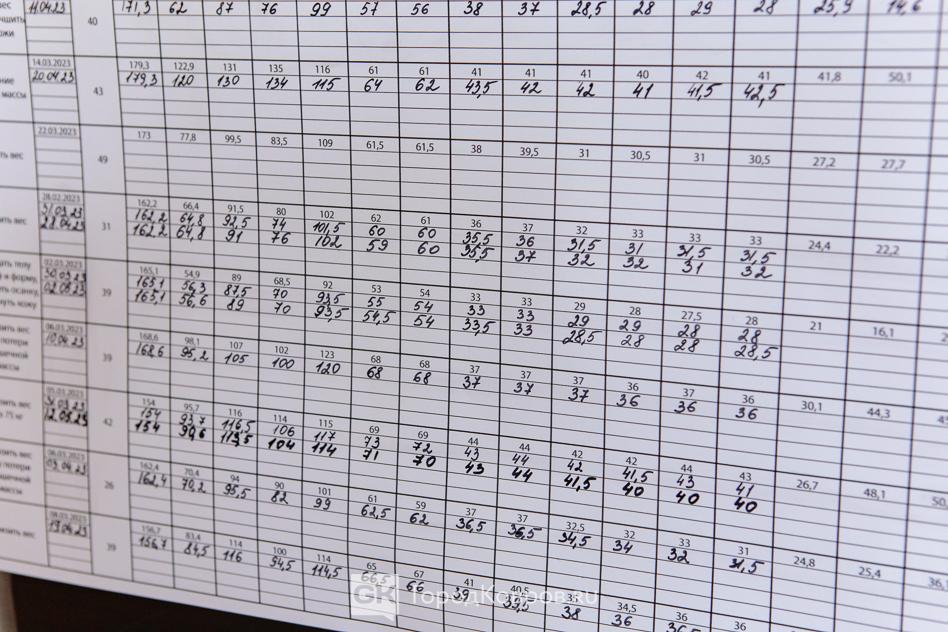 11.04.23 40 171,3 62 87 76 99 57 56 38 37 28,5 28 29 28 25,9 14,6
14.03.2023 179,3 122,9 131 135 116 61 61 41 41 41 40 42 41 41,8 50,1
20.04.23 43 179,3 120 130 134 115 64 62 43,5 42 42 41 41,5 42,5
массы
22.03.2023 173 77,8 99,5 83,5 109 61,5 61,5 38 39,5 31 30,5 31 30,5 27,2 27,7
вес 49
28.02.2023 162,2 66,4 91,5 80 102 62 61 36 37 32 33 33 33 24,4 22,2
31.03.23 162,2 64,8 92,5 74 101,5 60 60 35,5 36 31,5 31 31,5 31,5
вес 28.04.23 31 162,2 64,8 91 76 102 59 60 35,5 37 32 32 31 32
02.03.2023 165,1 54,9 89 68,5 92 53 54 33 33 29 28 27,5 28 21 16,1
и форму, 30.03.23 165,1 56,3 87,5 70 93,5 55 54 33 33 29 29 28 28
осанку, 39 165,1 56,6 89 70 93,5 54,5 54 33,5 33 28,5 28 28 28,5
кожу
06.03.2023 168,6 98,1 107 102 123 68 68 37 37 37 36 37 36 30,1 44,3
вес 10.04.23 39 168,6 95,2 105 100 120 68 68 37 37 37 36 36 36
потери
массы
154 95,7 116 114 115 69 69 44 44 42 42 44 43 26,7 48,1
вес 42 154 93,7 116,5 106 117 73 72 43 44 42 41,5 43 41
75 кг 154 113,5 104 114 71 70 43 44 41,5 40 40 40
06.03.2023 162,4 70,4 94 90 101 61 59 37 37 32,5 32 33 31 24,8 25,4
вес 03.04.23 26 162,4 70,2 95,5 82 99 62,5 62 36,5 36,5 34,5 34 32 31,5
потери
массы
156,7 83,4 114 100 114 65 67 41 40,5 34,5 36 36,1
вес 39 156,7 84,5 116 94,5 114,5 66,5 66 39 39,5 38 36 36,5 36
GK ГородКовров.ru